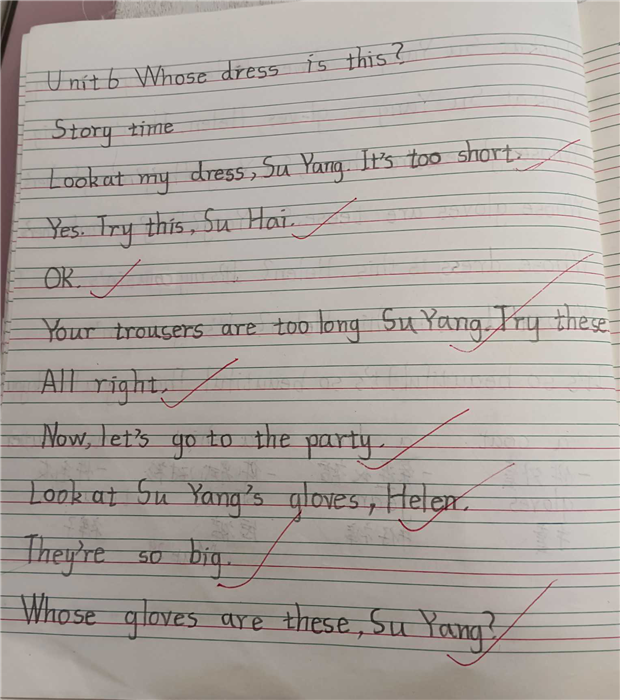 Unit 6 Whose dress is this?
Story time
Look at my dress, Su Yang. It's too short.
Yes. Try this, Su Hai.
OK.
Your trousers are too long Su Yang. Try these
All right.
Now, let's go to the party.
Look at Su Yang's gloves, Helen.
They're so big.
Whose gloves are these, Su Yang?